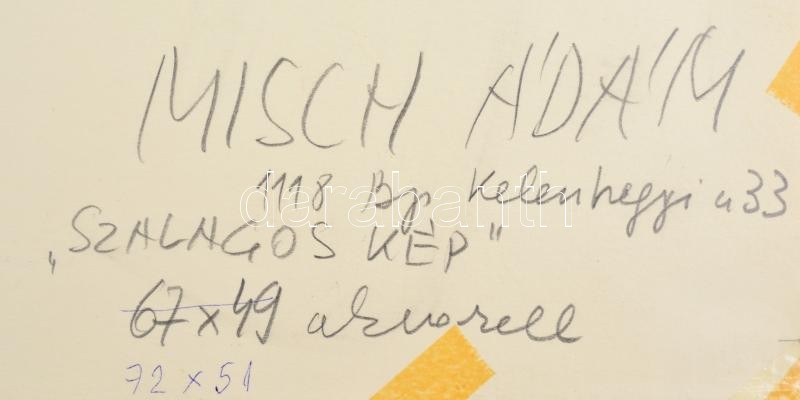 MISCH ÁDÁM
1118 Bp. Kelenhegyi u 33
„SZALAGOS KÉP"
67x49 akvarell
72 x 51
darabanth